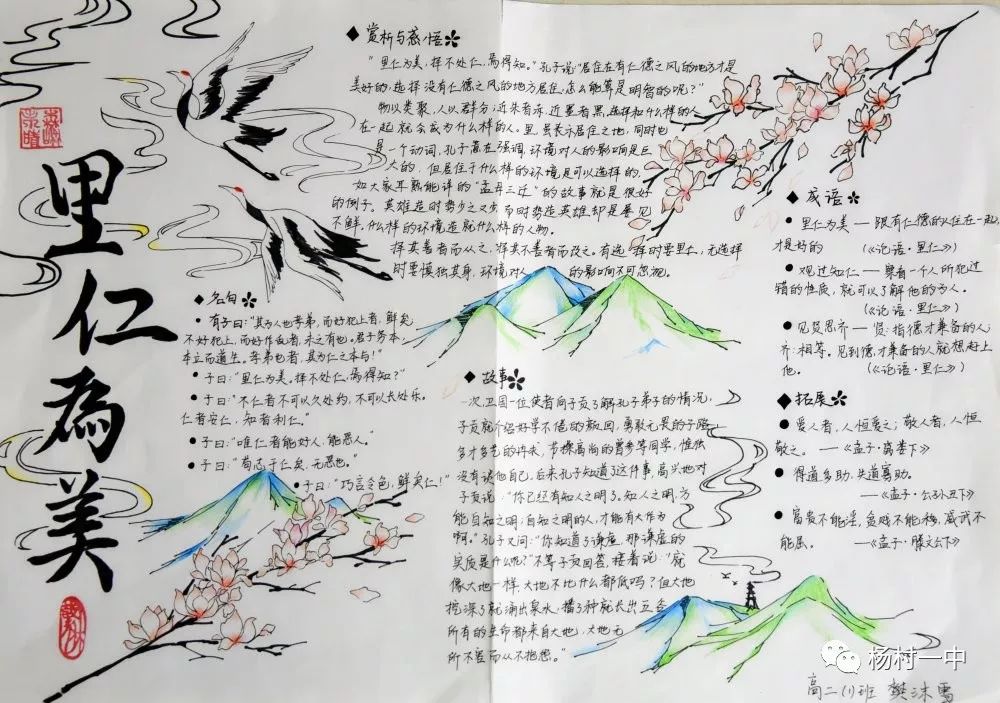 里仁為美
◆ 赏析与感悟
"里仁为美,择不处仁,焉得知。"孔子说:"居住在有仁德之风的地方才是
美好的,选择没有仁德之风的地方居住,怎么能算是明智的呢?"
物以类聚,人以群分;近朱者赤,近墨者黑,选择和什么样的人
在一起就会成为什么样的人。里,虽表示居住之地,同时也
是一个动词,孔子意在强调,环境对人的影响是巨
大的,但居住于什么样的环境是可以选择的,
如大家耳熟能详的"孟母三迁"的故事就是很好
的例子。英雄造时势少之又少,而时势造英雄却是屡见
不鲜,什么样的环境造就什么样的人物。
择其善者而从之,择其不善者而改之。有选择时要里仁,无选择
时要慎独其身,环境对人的影响不可忽视。
◆ 名句
● 有子曰:"其为人也孝弟,而好犯上者,鲜矣,
不好犯上,而好作乱者,未之有也。君子务本,
本立而道生。孝弟也者,其为仁之本与!"
● 子曰:"里仁为美。择不处仁,焉得知?"
● 子曰:"不仁者不可以久处约,不可以长处乐。
仁者安仁,知者利仁。"
● 子曰:"唯仁者能好人,能恶人。"
● 子曰:"苟志于仁矣,无恶也。"
● 子曰:"巧言令色,鲜矣仁!"
◆ 故事
一次,卫国一位使者向子贡了解孔子弟子的情况,
子贡就介绍好学不倦的颜回,勇敢无畏的子路
多才多艺的冉求,节操高尚的曾参等同学,惟独
没有谈他自己,后来孔子知道了这件事,高兴地对
子贡说:"你已经有知人之明了。知人之明,方
能自知之明;自知之明的人,才能有大作为
啊。"孔子又问:"你知道了谦虚,那谦虚的
实质是什么呢?"不等子贡回答,接着说:"就
像大地一样,大地不比什么都低吗?但大地
挖深了就涌出泉水,播了种就长出五谷
所有的生命都来自大地,大地无
所不容而从不抱怨。"
◆ 成语
● 里仁为美 — 跟有仁德的人住在一起,
才是好的 (《论语·里仁》)
● 观过知仁 — 察看一个人所犯过
错的性质,就可以了解他的为人。
(《论语·里仁》)
● 见贤思齐 — 贤:指德才兼备的人;
齐:相等。见到德才兼备的人就想赶上
他。 (《论语·里仁》)
◆ 拓展
● 爱人者,人恒爱之;敬人者,人恒
敬之。 —《孟子·离娄下》
● 得道多助,失道寡助。
—《孟子·公孙丑下》
● 富贵不能淫,贫贱不能移,威武不
能屈。 —《孟子·滕文公下》
杨村一中
高二(1)班 樊沐雪